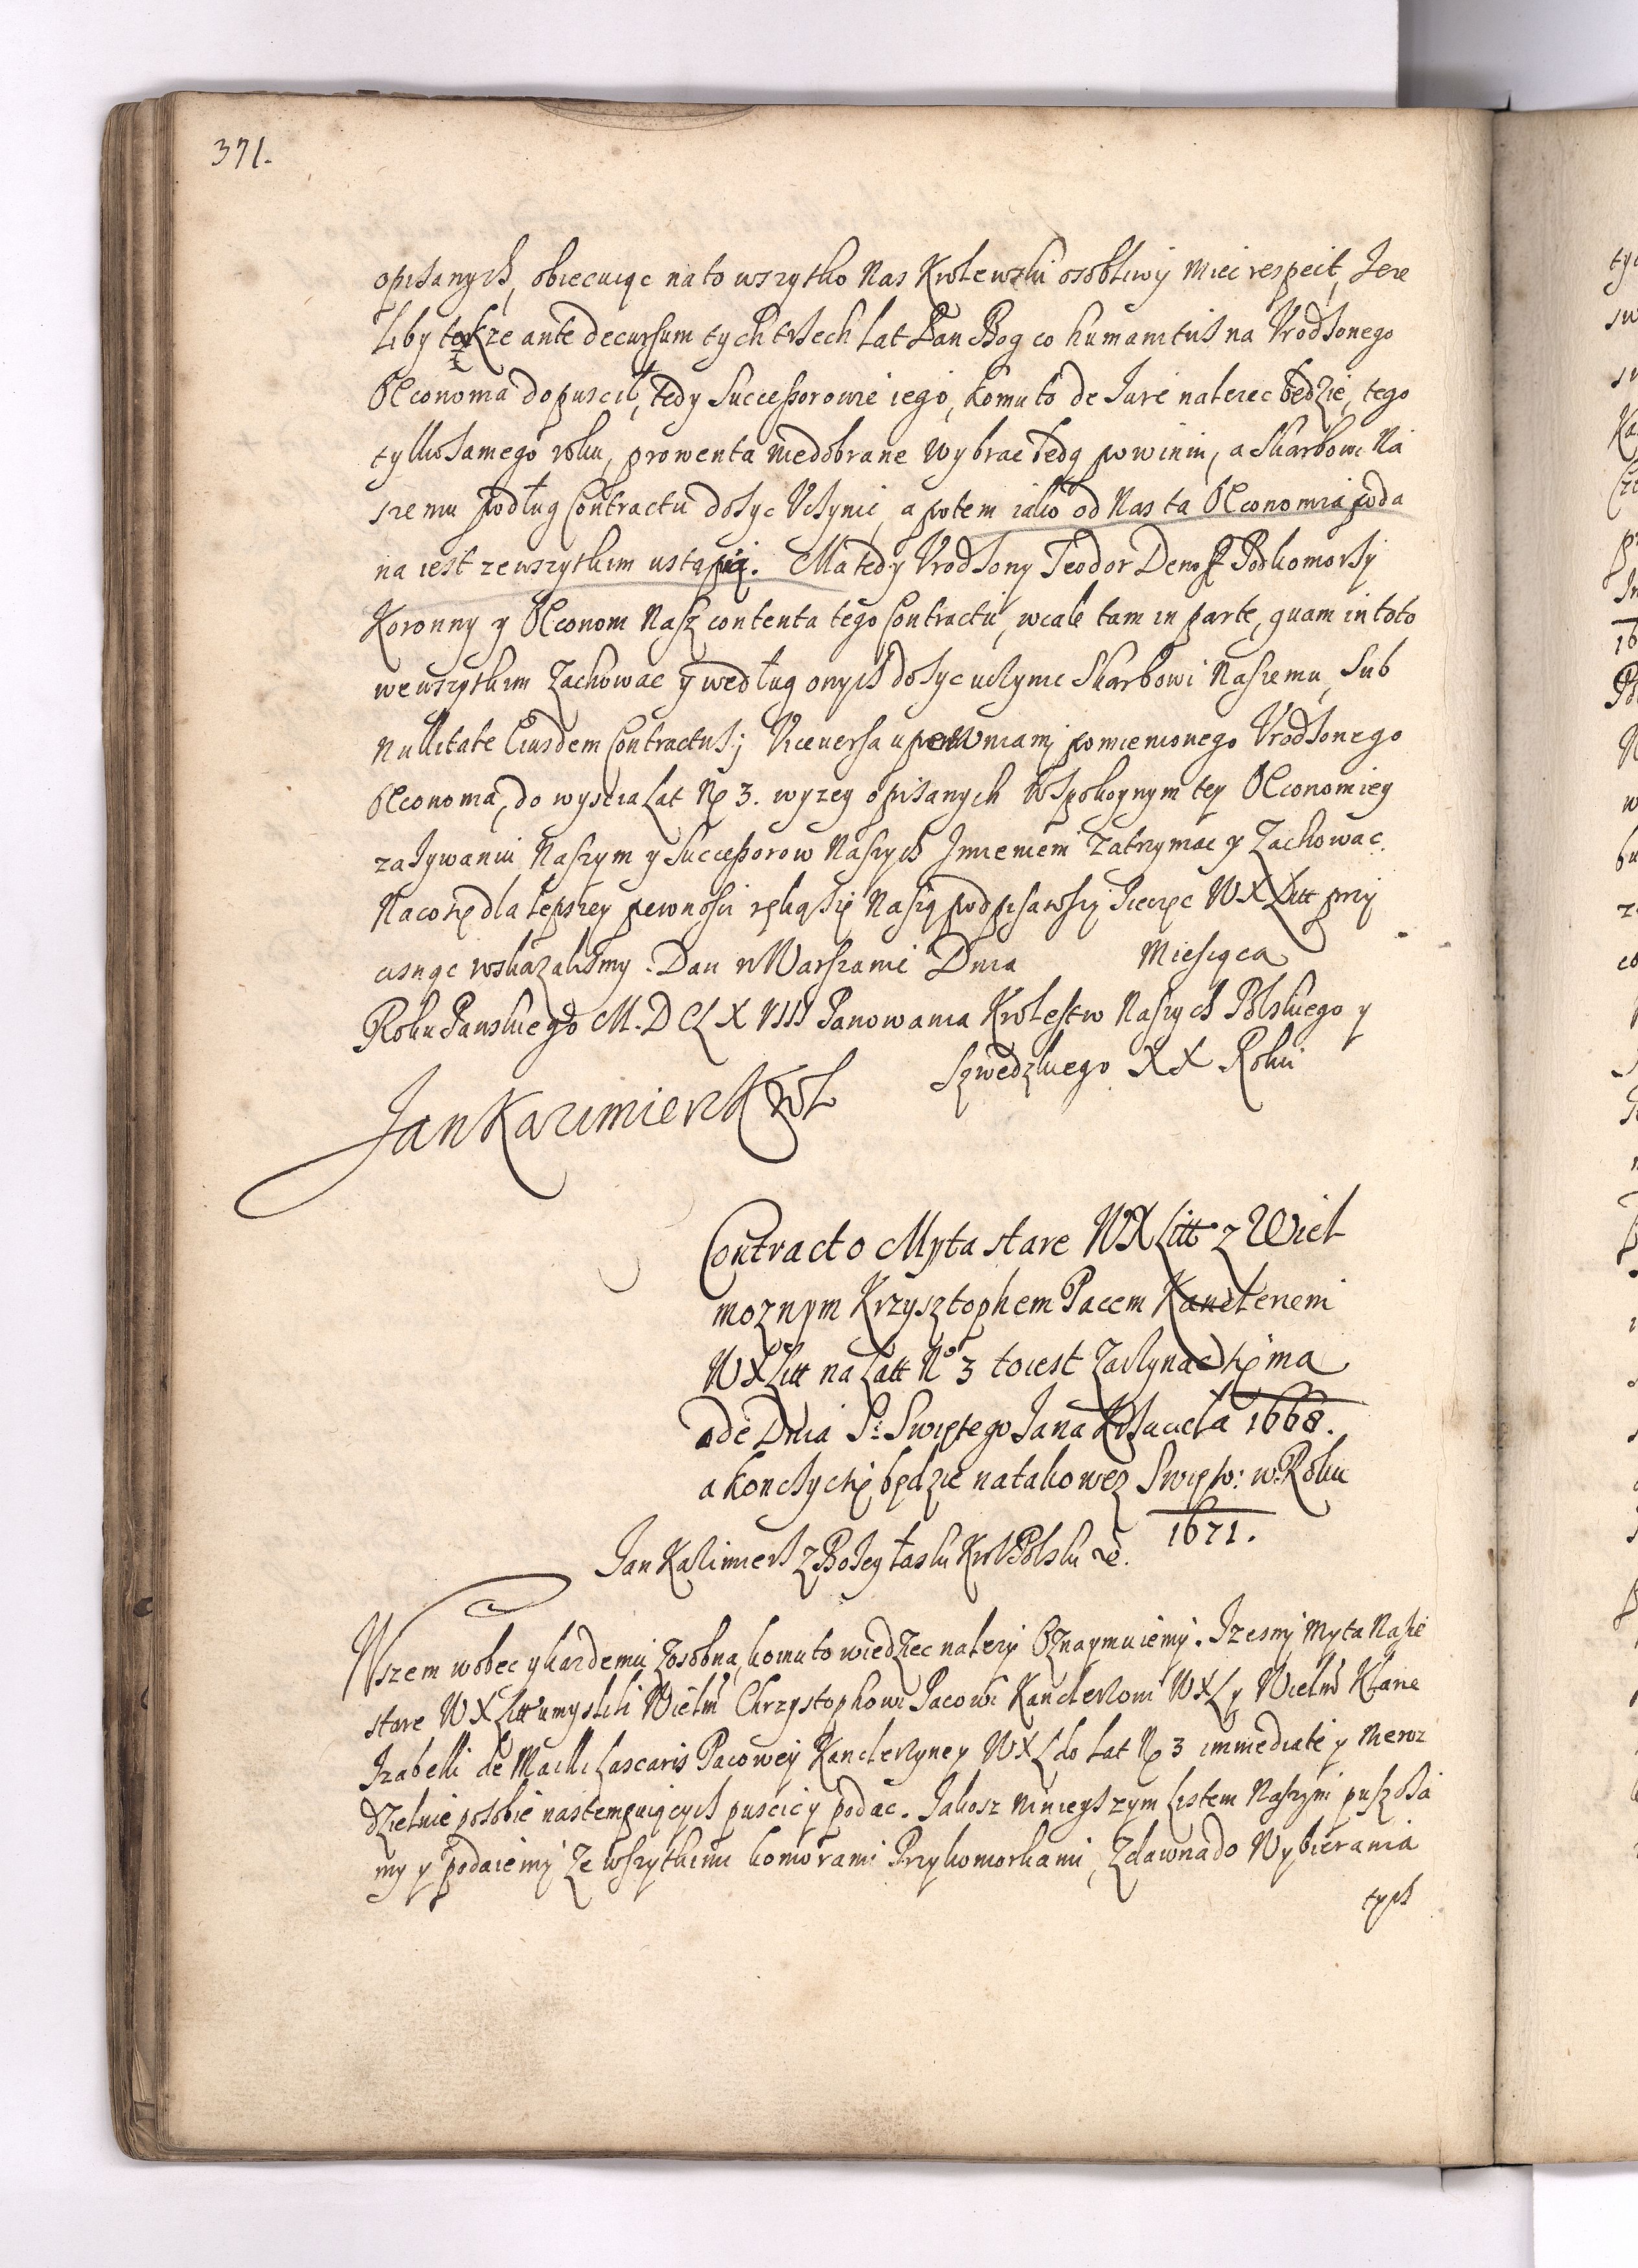 371.
opisanych, obiecuiąc na to wszytko Nas Krolewski osobliwy miec respect, Jeze
liby takze ante decursum tych trzech Lat Pan Bog co humanitus na Urodzonego
Œconoma dopuscił, tedy Successorowie iego, komu to de Jure nalezec będzie, tego
tylko samego roku, prowenta niedobrane wybrac będą powinni, a Skarbowi Na
szemu podług Contractu dosyc Uczynic, a potem iako od Nas ta Œconomia poda
na iest ze wszytkim ustąpią. Ma tedy Urodzony Teodor Denoff Podkomorzy
Koronny y Œconom Nasz contenta tego Contractu, wcale tam in parte, quam in toto
we wszytkim Zachowac y według onych dosyc uczynic Skarbowi Naszemu, Sub
Nullitate Eiusdem Contractus; Viceversa upewniamy pomienionego Urodzonego
Œconoma, do wyscia Lat No 3. wyzey opisanych W spokoynym tey Œconomiey
zazywaniu Naszym y Successorow Naszych Imieniem zatrzymac y Zachowac.
Na co się dla lepszey pewnosci ręką się Naszą podpisawszy Pieczęc WXLitt przy
cisnąc roskazalismy. Dan w Warszawie Dnia Miesiąca
Roku Panskiego M.DCLXVIII Panowania Krolestw Naszych Polskiego y
Szwedzkiego XX Roku
Jan Kazimierz Krol
Contract o Myta stare WXLitt z Wiel
moznym Krzysztophem Pacem Kanclerzem
WXLitt na Latt No 3 to iest Zaczynac się ma
ode Dnia S: Swiętego Jana Krzciciela 1668.
a konczyc się będzie na takowez Swięto: w Roku
1671.
Jan Kazimierz z Bozey łaski Krol Polski &c.
Wszem wobec y kazdemu zosobna, komu to wiedziec nalezy Oznaymuiemy. Izesmy Myta Nasze
stare WXLitt umyslili Wielm Chrzystophowi Pacowi Kanclerzowi WXL y Wielm Klarze
Izabelli de Mailli Lascaris Pacowey Kanclerzyney WXL do Lat No 3 immediate y nieroz
dzielnie po sobie nastempuiących puscic y podac. Jakosz ninieyszym Listem Naszym puszcza
my y podaiemy ze wszytkimi komorami Przykomorkami, Zdawna do Wybierania
tych